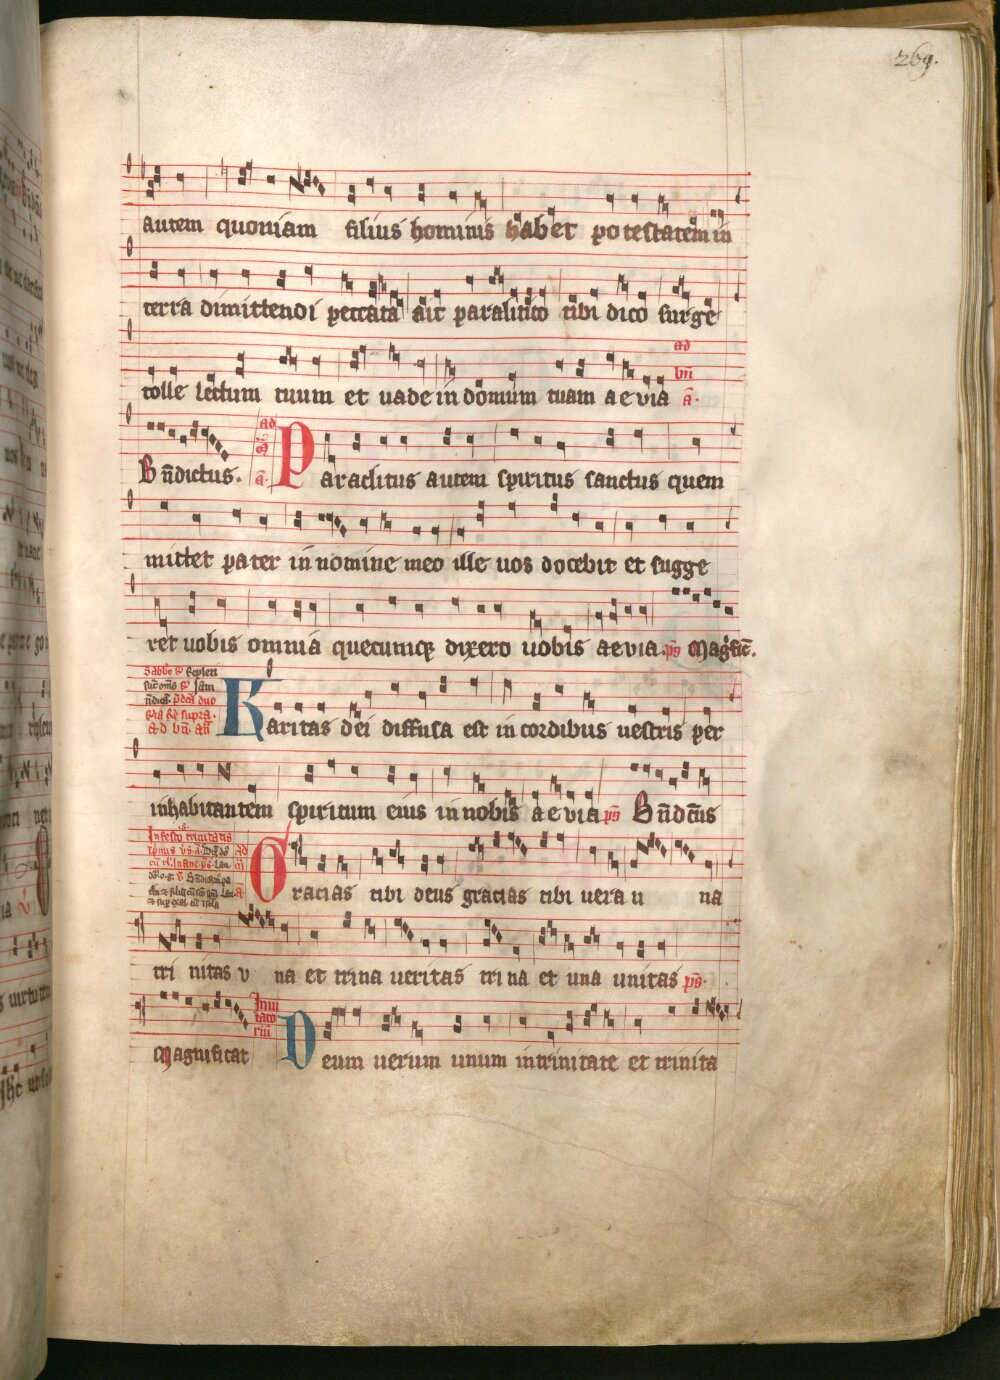 269.
autem quoniam filius hominis habet potestatem in
terra dimittendi peccata ait paralitico tibi dico surge
tolle lectum tuum et uade in domum tuam aeuia
ad
bñ
ā.
Bñdictus.
ad
ā.
Paraclitus autem spiritus sanctus quem
mittet pater in nomine meo ille uos docebit et sugge
ret uobis omnia quecumqz dixero uobis aeuia. ps Magficē.
Karitas dei diffusa est in cordibus uestris per
inhabitantem spiritum eius in nobis aeuia ps Bñdctus
In festo trinitatis
Gracias tibi deus gracias tibi uera u na
tri nitas v na et trina ueritas trina et una unitas ps.
Magnificat
Inui
tato
riū
Deum uerum unum in trinitate et trinita